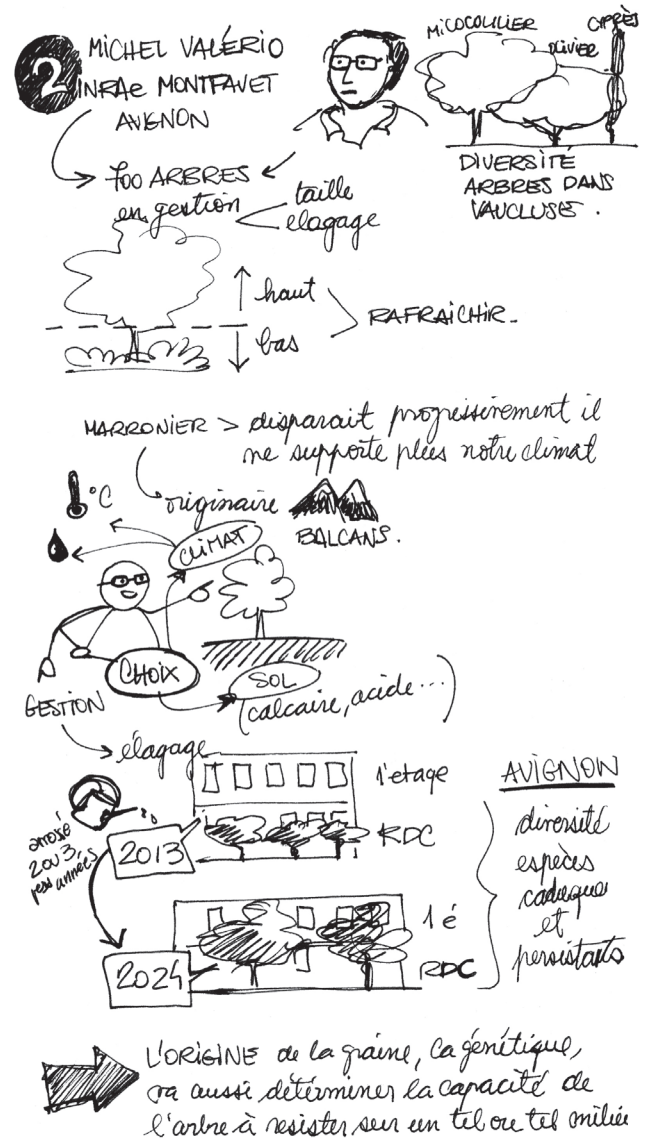 2
MICHEL VALÉRIO
INRAe MONTFAVET
AVIGNON
MICOCOULIER
OLIVIER
CYPRÈS
DIVERSITÉ
ARBRES DANS
VAUCLUSE.
700 ARBRES
en gestion
taille
elagage
haut
bas
RAFRAICHIR_
MARRONIER > disparait progressivement il
ne supporte plus notre climat
originaire
BALCANS.
°C
CLIMAT
CHOIX
SOL
(calcaire, acide...)
GESTION
élagage
1'etage
RDC
2013
arrosé
2 ou 3
années
1 é
RDC
2024
AVIGNON
diversité
espèces
caduque
et
persistants
L'ORIGINE de la graine, la génétique,
va aussi déterminer la capacité de
l'arbre à resister sur un tel ou tel milieu